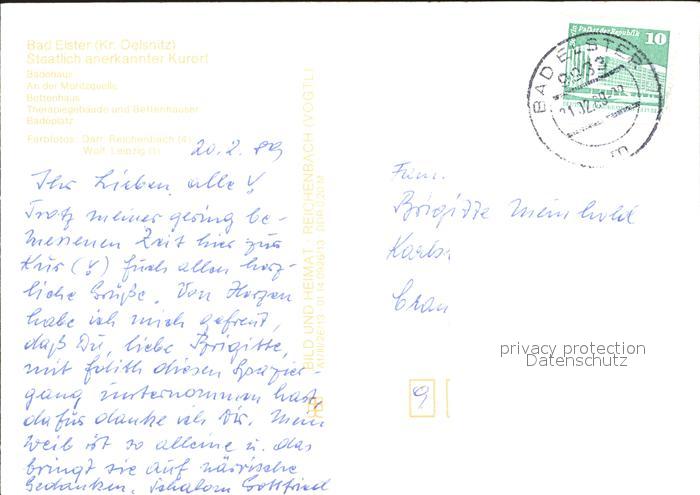 Bad Elster (Kr. Oelsnitz)
Staatlich anerkannter Kurort
Badehaus
An der Moritzquelle
Bettenhaus
Therapiegebäude und Bettenhäuser
Badeplatz
Farbfotos: Darr, Reichenbach (4)
Wolf, Leipzig (1)
20.2.89
Ihr Lieben alle!
Trotz meiner gering be-
messenen Zeit hier zur
Kur (!) Euch allen herz-
liche Grüße. Von Herzen
habe ich mich gefreut,
daß Du, liebe Brigitte,
mit Edith diesen Spazier-
gang unternommen hast,
dafür danke ich Dir. Mein
Weib ist so alleine u. das
bringt sie auf närrische
Gedanken. Schalom Gottfried
BILD UND HEIMAT REICHENBACH (VOGTL)
Palast der Republik
10
BAD ELSTER
9933
21.02.89
m
Fam.
Brigitte Meinhold
9
privacy protection
Datenschutz